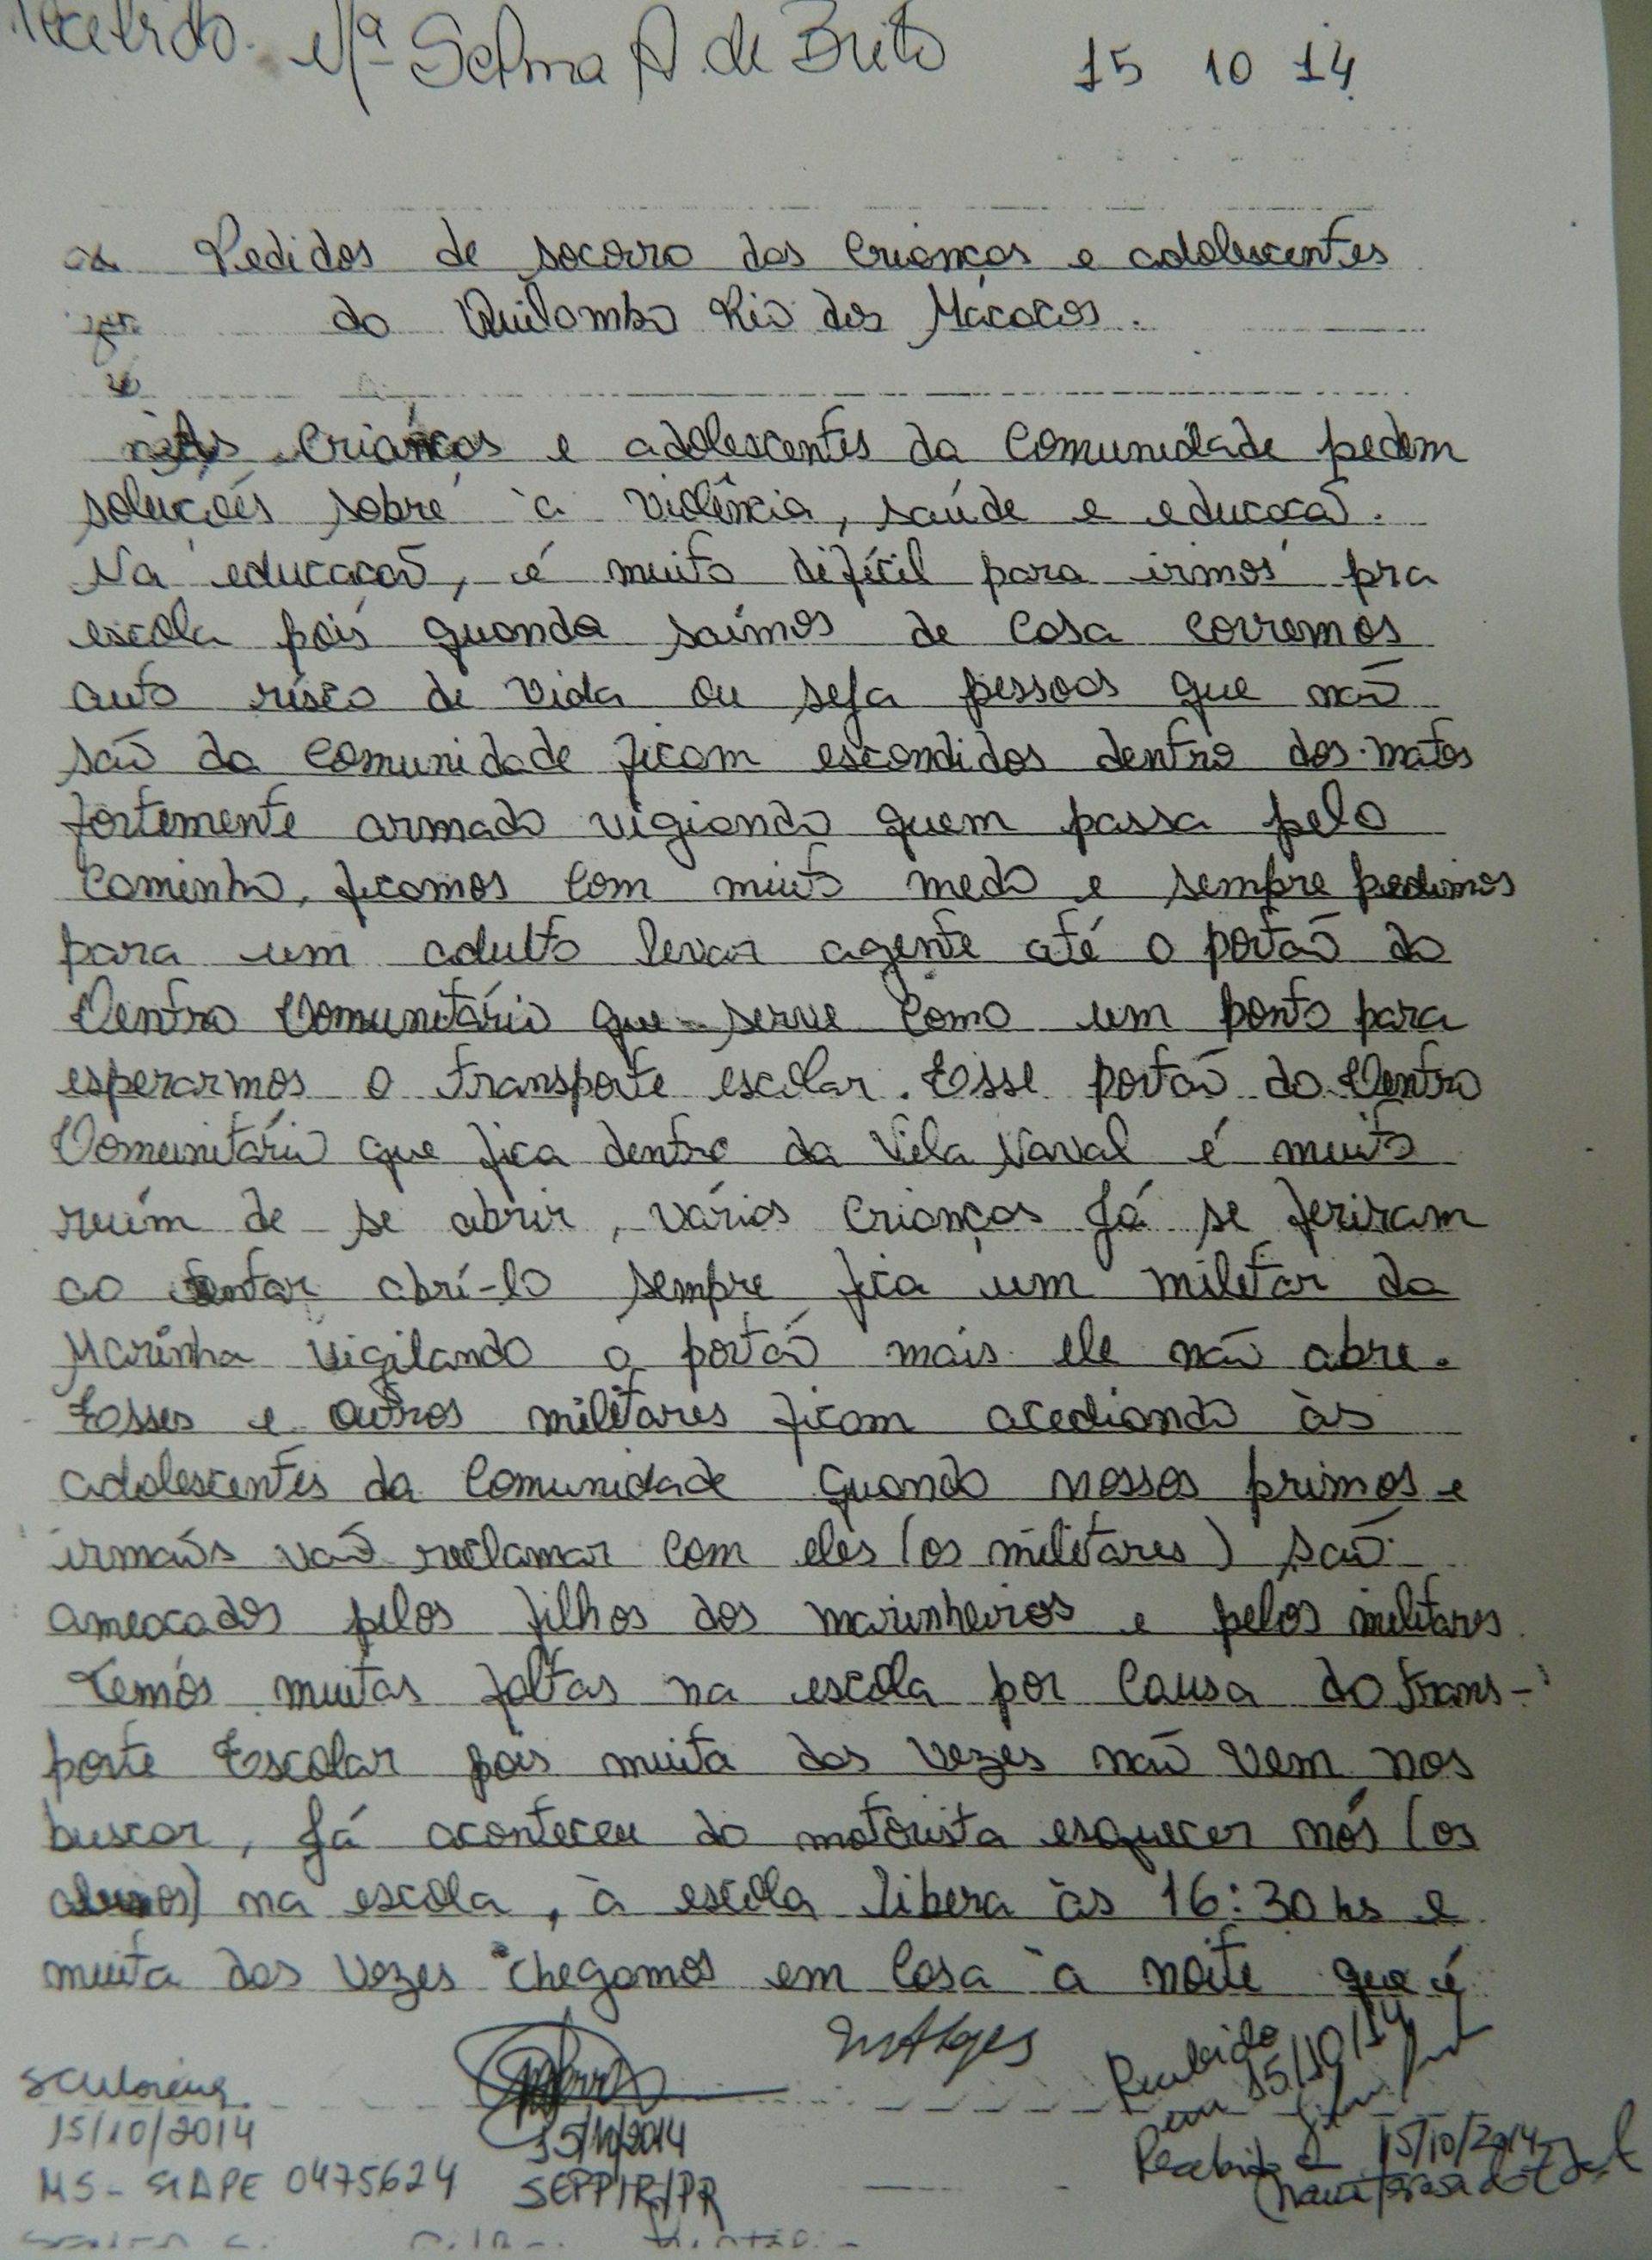 Recebido. Mª Selma A. de Brito 15 10 14
Pedidos de socorro das crianças e adolescentes
do Quilombo Rio dos Macacos.
As crianças e adolescentes da comunidade pedem
soluções sobre à violência, saúde e educação.
Na educação, é muito difícil para irmos pra
escola pois quando saímos de casa corremos
auto risco de vida ou seja pessoas que não
são da comunidade ficam escondidos dentro dos matos
fortemente armado vigiando quem passa pelo
caminho, ficamos com muito medo e sempre pedimos
para um adulto levar agente até o portão do
Centro Comunitário que serve como um ponto para
esperarmos o transporte escolar. Esse portão do Centro
Comunitário que fica dentro da Vila Naval é muito
ruím de se abrir, várias crianças já se feriram
ao tentar abrí-lo sempre fica um militar da
Marinha vigilando o portão mais ele não abre.
Esses e outros militares ficam acediando às
adolescentes da comunidade quando nossos primos e
irmãos vão reclamar com eles (os militares) são
ameaçados pelos filhos dos marinheiros e pelos militares.
Temos muitas faltas na escola por causa do trans-
porte Escolar pois muita das vezes não vem nos
buscar, já aconteceu do motorista esquecer nós (os
alunos) na escola, à escola libera às 16:30 hs e
muita das vezes chegamos em casa à noite que é
Recebido
em 15/10/14
15/10/2014
MS - SIAPE 0475624
15/10/2014
SEPPIR/PR
Recebido 15/10/2014